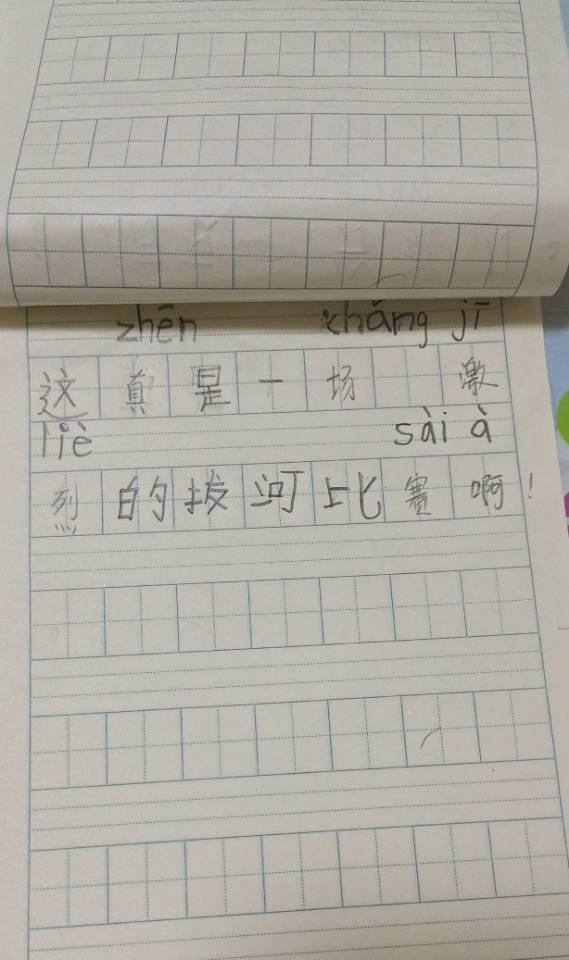 zhēn chǎng jī
这真是一场 激
liè sài à
烈的拔河比赛啊！